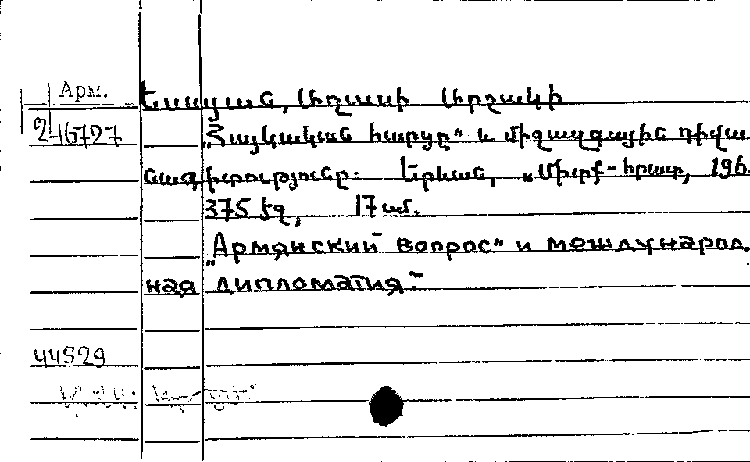 Арм.
Եսայան, Աղասի Արշակի
2-16727
„Հայկական հարցը“ և միջազգային դիվա
նագիտությունը. Երևան, „Միտք-հրատ, 196
375 էջ, 17 սմ.
„Армянский вопрос“ и международ
ная дипломатия.
44529